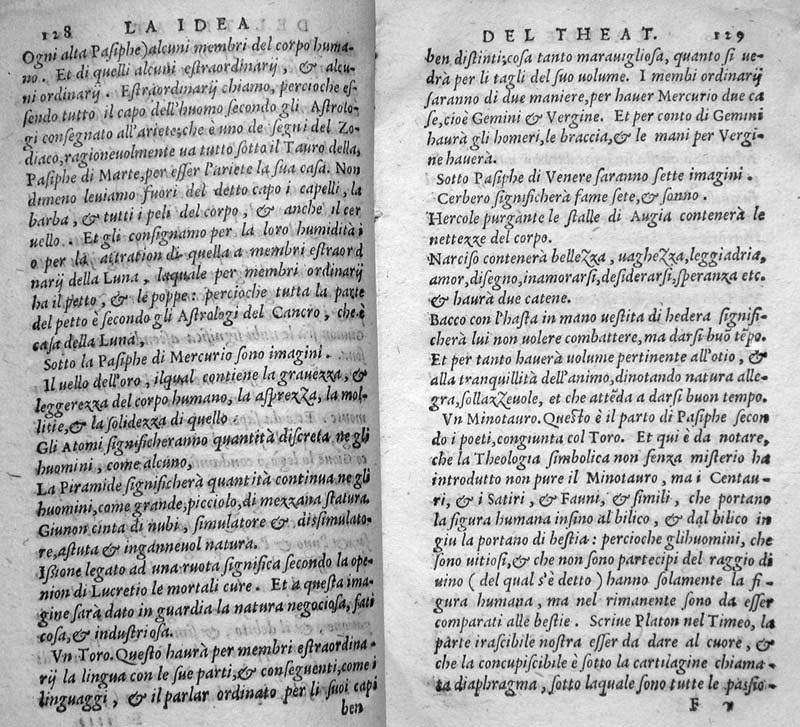 128 LA IDEA
Ogni alta Pasiphe) alcuni membri del corpo huma-
no. Et di quelli alcuni eſtraordinarij, & alcu-
ni ordinarij. Eſtraordinarij chiamo, percioche eſ-
ſendo tutto il capo dell'huomo ſecondo gli Aſtrolo-
gi conſegnato all'ariete; che è uno de ſegni del Zo-
diaco, ragioneuolmente ua tutto ſotto il Tauro della,
Paſiphe di Marte, per eſſer l'ariete la ſua caſa. Non
dimeno leuiamo fuori del detto capo i capelli, la
barba, & tutti i peli del corpo, & anche il cer
uello. Et gli conſignamo per la loro humidità
o per la attration di quella a membri eſtraord
narij della Luna, laquale per membri ordinarij
ha il petto, & le poppe: percioche tutta la parte
del petto è ſecondo gli Aſtrologi del Cancro, che è
caſa della Luna,
Sotto la Paſiphe di Mercurio ſono imagini.
Il uello dell'oro, ilqual contiene la grauezza, &
leggerezza del corpo humano, la aſprezza, la mol-
litie, & la ſolidezza di quello.
Gli Atomi ſignificheranno quantità diſcreta ne gli
huomini, come alcuno,
La Piramide ſignificherà quantità continua ne gli
huomini, come grande, picciolo, di mezzana ſtatura.
Giunon cinta di nubi, ſimulatore & diſſimulato-
re, aſtuta & ingãnneuol natura.
Iſſione legato ad una ruota ſignifica ſecondo la ope-
nion di Lucretio le mortali cure. Et a queſta ima-
gine ſarà dato in guardia la natura negocioſa, fati
coſa, & induſtrioſa.
Vn Toro. Queſto haurà per membri eſtraordina-
rij la lingua con le ſue parti, & conſeguenti, come i
linguaggi, & il parlar ordinato per li ſuoi capi
ben
DEL THEAT. 129
ben diſtinti; coſa tanto marauiglioſa, quanto ſi ue-
drà per li tagli del ſuo uolume. I membi ordinarij
ſaranno di due maniere, per hauer Mercurio due ca
ſe, cioè Gemini & Vergine. Et per conto di Gemini
haurà gli homeri, le braccia, & le mani per Vergi-
ne hauerà.
Sotto Paſiphe di Venere ſaranno ſette imagini.
Cerbero ſignificherà fame ſete, & ſonno.
Hercole purgante le ſtalle di Augia contenerà le
nettezze del corpo.
Narciſo contenerà bellezza, uaghezza, leggiadria,
amor, diſegno, inamorarſi, deſiderarſi, ſperanza etc.
& haurà due catene.
Bacco con l'haſta in mano ueſtita di hedera ſignifi-
cherà lui non uolere combattere, ma darſi buõ tẽpo.
Et per tanto hauerà uolume pertinente all'otio, &
alla tranquillità dell'animo, dinotando natura alle-
gra, ſollazzeuole, et che attẽda a darſi buon tempo.
Vn Minotauro. Queſto è il parto di Paſiphe ſecon
do i poeti, congiunta col Toro. Et qui è da notare,
che la Theologia ſimbolica non ſenza miſterio ha
introdutto non pure il Minotauro, ma i Centau-
ri, & i Satiri, & Fauni, & ſimili, che portano
la figura humana inſino al bilico, & dal bilico in
giu la portano di beſtia: percioche glihuomini, che
ſono uitioſi, & che non ſono partecipi del raggio di
uino (del qual s'è detto) hanno ſolamente la fi-
gura humana, ma nel rimanente ſono da eſſer
comparati alle beſtie. Scriue Platon nel Timeo, la
parte iraſcibile noſtra eſſer da dare al cuore, &
che la concupiſcibile è ſotto la cartilagine chiama-
ta diaphragma, ſotto laquale ſono tutte le paſſio-
F